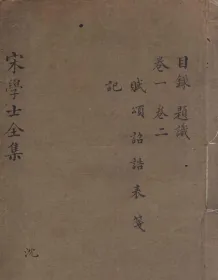 目錄 題識
卷一 卷二
賦 頌 詔 誥 表 箋
記
宋學士全集
沈